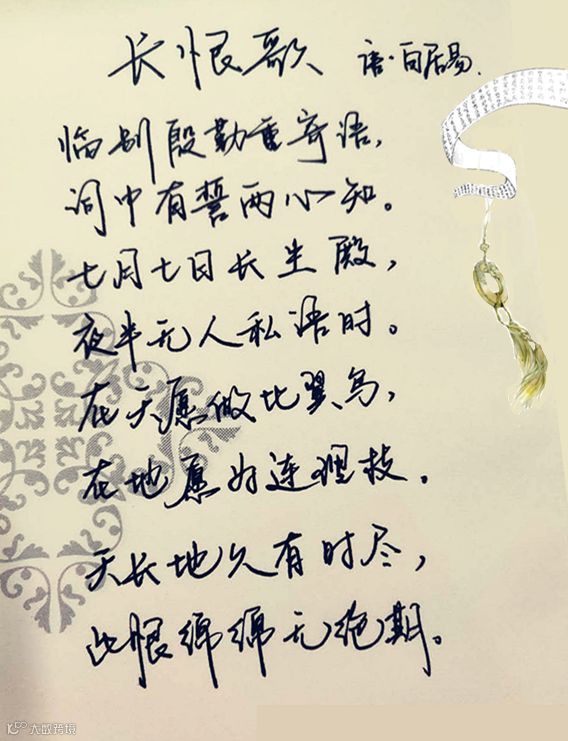 长恨歌 唐·白居易.
临别殷勤重寄语,
词中有誓两心知。
七月七日长生殿,
夜半无人私语时。
在天愿做比翼鸟,
在地愿为连理枝.
天长地久有时尽,
此恨绵绵无绝期。
大数跨境